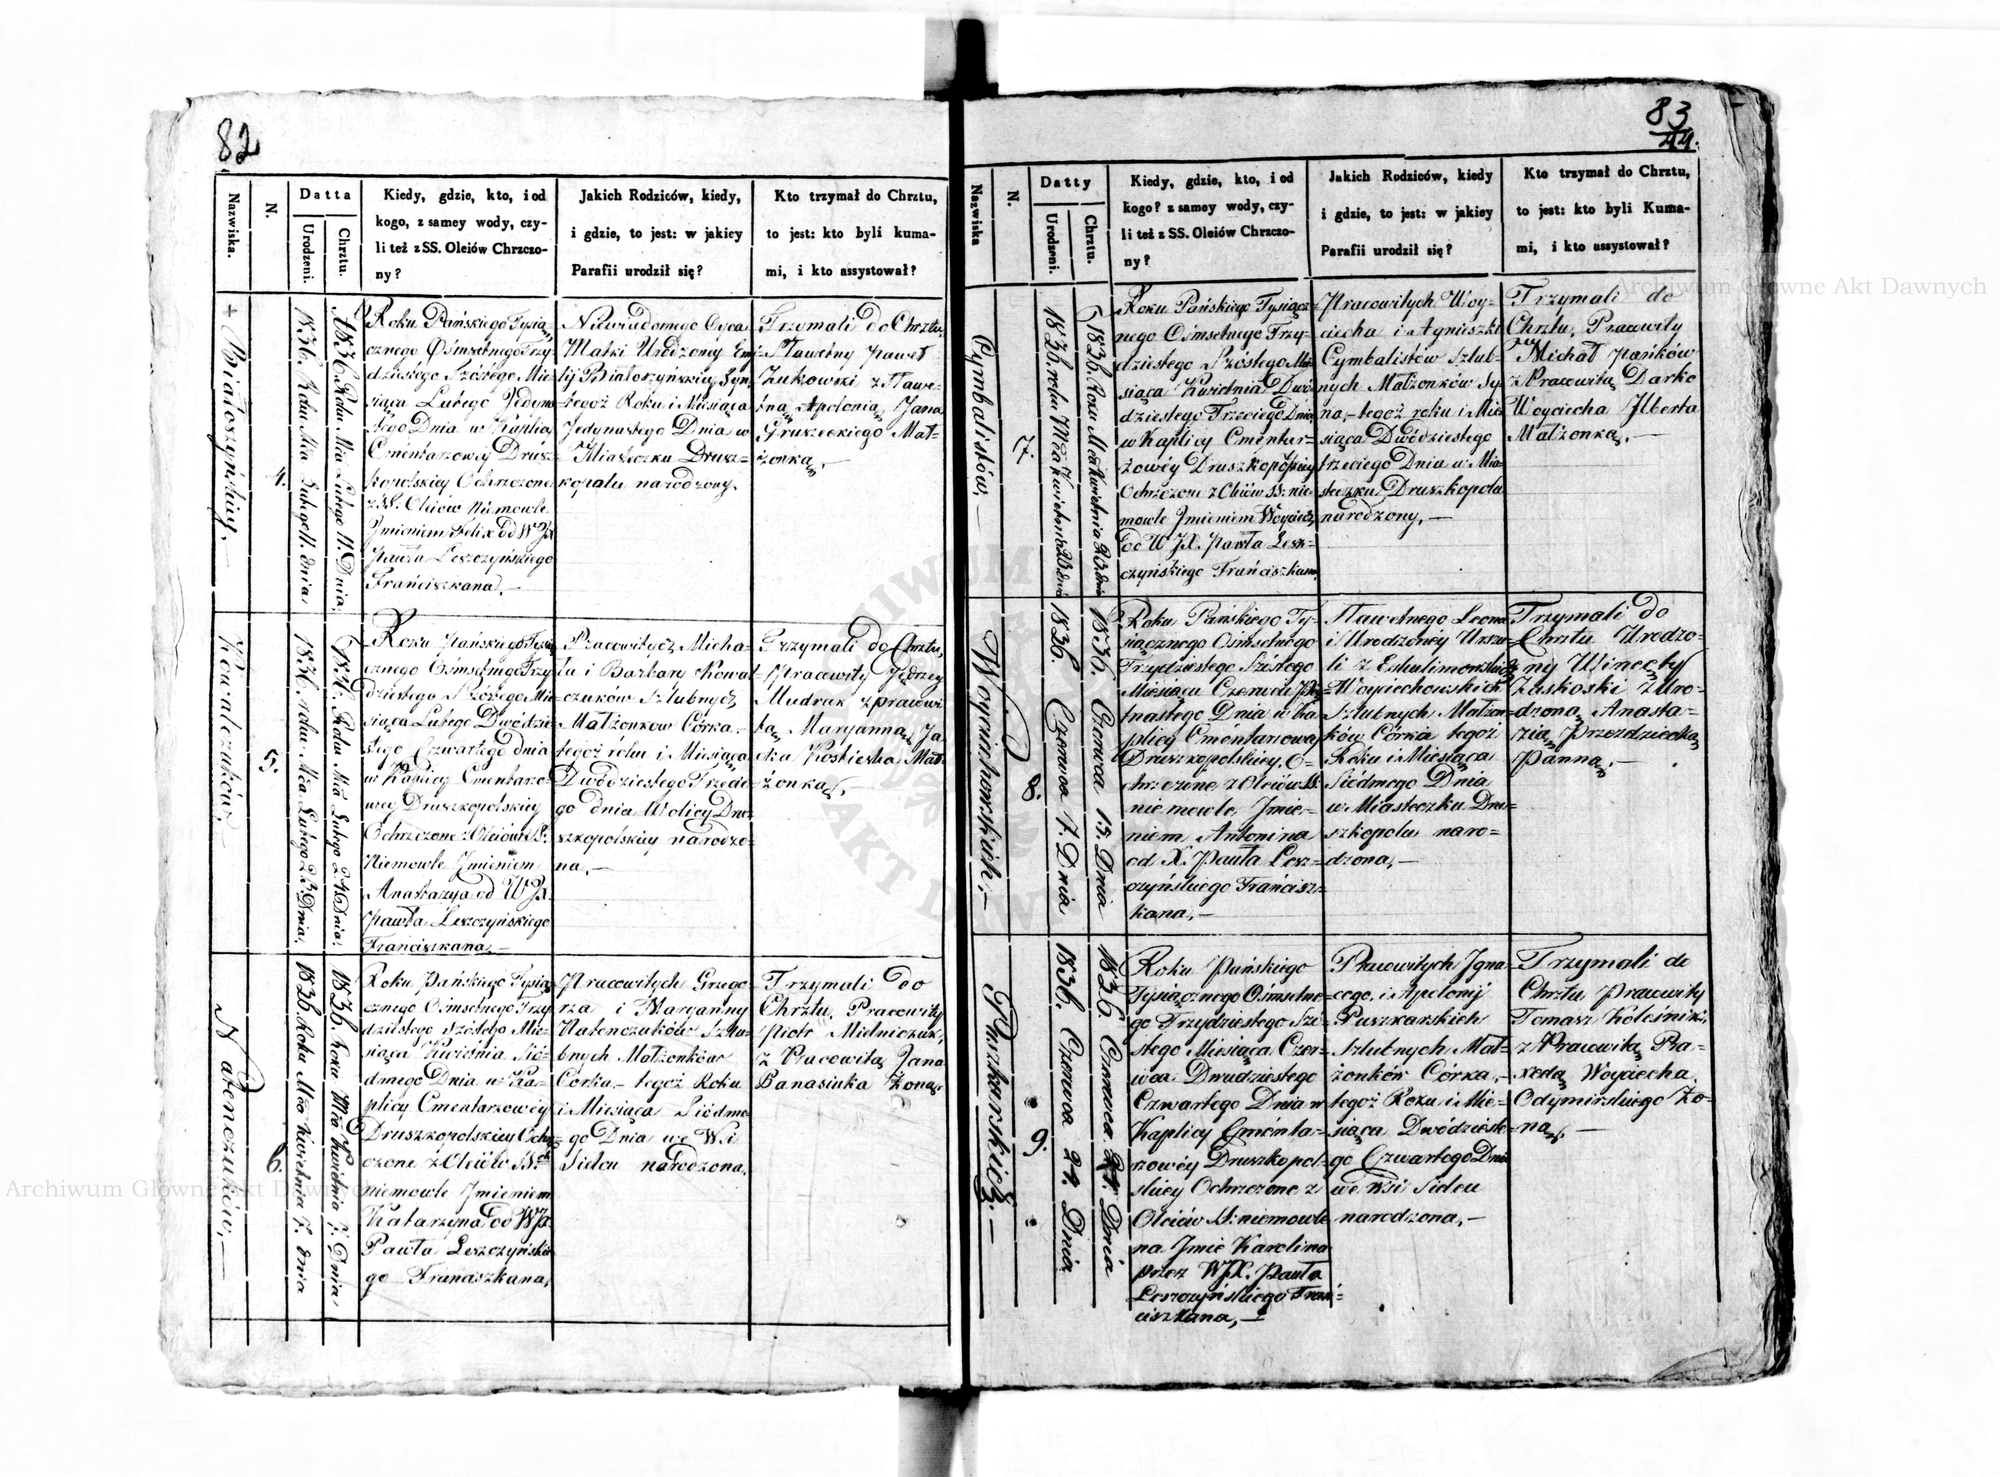 82
Nazwiska.
N.
Datta
Urodzeni.
Chrztu.
Kiedy, gdzie, kto, i od
kogo, z samey wody, czy-
li też z SS. Oleiów Chrzczo-
ny?
Jakich Rodziców, kiedy,
i gdzie, to jest: w jakiey
Parafii urodził się?
Kto trzymał do Chrztu,
to jest: kto byli kuma-
mi, i kto assystował?
+ Białoszyńskiey. —
4.
1836. Roku Mca Lutego 11. dnia
1836. Roku Mca Lutego 11. Dnia.
Roku Pańskiego Tysią-
cznego Ośmsetnego Trzy
dziestego Szóstego Mie-
siąca Lutego Jedyna
stego Dnia w Kaplicy
Cmentarzowey Drusz-
kopolskiey Ochrzczone
z SS. Oleiów Niemowle
Jmieniem Felix od WJX
Pawła Leszczyńskiego
Franciszkana. —
Niewiadomego Oyca
Matki Urodzoney Emi-
lij Białoszyńskiey Syn
tegoż Roku i Miesiąca
Jedynastego Dnia w
Miasteczku Drusz-
kopolu narodzony.
Trzymali do Chrztu,
Sławetny Paweł
Żukowski z Sławe-
tną Apolonią Jana
Gruszeckiego Mał-
żonką. —
Kowalczuków.
5.
1836. roku Mca Lutego 23 Dnia.
1836. Roku Mca Lutego 24 Dnia.
Roku Pańskiego Tysią
cznego Ośmsetnego Trzy
dziestego Szóstego Mie-
siąca Lutego Dwódzie-
stego Czwartego dnia
w Kaplicy Cmentarzo-
wey Druszkopolskiey
Ochrzczone z Oleiów SS.
Niemowle Jmieniem
Anastazya od WJX.
Pawła Leszczyńskiego
Franciszkana. —
Pracowitych Micha-
ła i Barbary Kowal-
czuków Szlubnych
Małżonkow Córka
tegoż roku i Miesiąca
Dwódziestego Trzecie-
go dnia Wolicy Dru-
szkopolskiey narodzo-
na. —
Trzymali do Chrztu,
Pracowity Jędrzey
Mudruk z pracowi-
tą Maryanną Ja-
cka Kostiecka Mał-
żonką. —
Natenczuków. —
6.
1836. Roku Mca Kwietnia 7. dnia
1836. Roku Mca Kwietnia 7. Dnia.
Roku Pańskiego Tysią-
cznego Ośmsetnego Trzy
dziestego Szóstego Mie-
siąca Kwietnia Siό-
dmego Dnia w Ka-
plicy Cmentarzowey
Druszkopolskiey Ochrz-
czone z Oleiów SSch
niemowle Jmieniem
Katarzyna od WJX.
Pawła Leszczyńskie-
go Franciszkana.
Pracowitych Grzego-
rza i Maryanny
Natenczuków Szlu-
bnych Małżonków
Córka — tegoż Roku
i Miesiąca Siódme-
go Dnia we Wsi
Sidcu narodzona.
Trzymali do
Chrztu, Pracowity
Piotr Midniczuk,
z Pracowitą Jana
Banasiuka Żoną.
83
44.
Nazwiska
N.
Datty
Urodzeni.
Chrztu.
Kiedy, gdzie, kto, i od
kogo? z samey wody, czy-
li też z SS. Oleiów Chrzczo-
ny?
Jakich Rodziców, kiedy
i gdzie, to jest: w jakiey
Parafii urodził się?
Kto trzymał do Chrztu,
to jest: kto byli Kuma-
mi, i kto assystował?
Cymbalistów. —
7.
1836. roku Mca Kwietnia 23. dnia
1836. Roku Mca Kwietnia 23. dnia
Roku Pańskiego Tysiącz-
nego Ośmsetnego Trzy-
dziestego Szóstego Mie-
siąca Kwietnia Dwó-
dziestego Trzeciego Dnia
w Kaplicy Cmentar-
zowéy Druszkopolskiey
Ochrzczone z Oleiów SS. nie-
mowle Jmieniem Woyciech
od WJX. Pawła Lesz-
czyńskiego Franciszkana.
Pracowitych Woy-
ciecha i Agnieszki
Cymbalistów Szlub-
nych Małżonków Sy
na, — tegoż roku i Mie-
siąca Dwódziestego
trzeciego Dnia w Mia-
steczku Druszkopolu
narodzony. —
Trzymali do
Chrztu, Pracowity
Michał Pańków
z Pracowitą Darko
Woyciecha Jlberta
Małżonką. —
Woyciechowskich. —
8.
1836. Czerwca 7. Dnia
1836. Czerwca 15. Dnia
Roku Pańskiego Ty-
siącznego Ośmsetnego
Trzydziestego Szóstego
Miesiąca Czerwca Pię-
tnastego Dnia w Ka-
plicy Cmentarzowey
Druszkopolskiey. O-
chrzczone z Oleiów SS.
niemowle, Jmie-
niem Antonina
od X. Pawła Lesz-
czyńskiego Francisz-
kana. —
Sławetnego Leona
i Urodzoney Urszu-
li z
Woyciechowskich
Szlubnych Małżon-
ków Córka tegoż
Roku i Miesiąca
Siódmego Dnia
w Miasteczku Dru-
szkopolu naro-
dzona. —
Trzymali do
Chrztu Urodzo-
ny Wincenty
Zaskoski z Uro-
dzoną Anasta-
zią Przezdziecką
Panną. —
Puzkarskich. —
9.
1836. Czerwca 24. Dnia
1836. Czerwca 24. Dnia
Roku Pańskiego
Tysiącznego Ośmsetne-
go Trzydziestego Szó-
stego Miesiąca Czer-
wca Dwudziestego
Czwartego Dnia w
Kaplicy Cmenta-
rzowéy Druszkopol-
skiey Ochrzczone z
Oleiów SS. niemowle
na Jmie Karolina
przez WJX. Pawła
Leszczyńskiego Fran-
ciszkana. —
Pracowitych Jgna-
cego, i Apolonij
Puszkarskich
Szlubnych Mał-
żonków Córka, —
tegoż Roku i Mie-
siąca Dwódzieste-
go Czwartego Dnia
we wsi Sidcu
narodzona. —
Trzymali do
Chrztu Pracowity
Tomasz Kolesnik,
z Pracowitą Pra-
xedą Woyciecha
Odymirskiego Żo-
ną. —
Archiwum Główne Akt Dawnych
Archiwum Główne Akt Dawnych